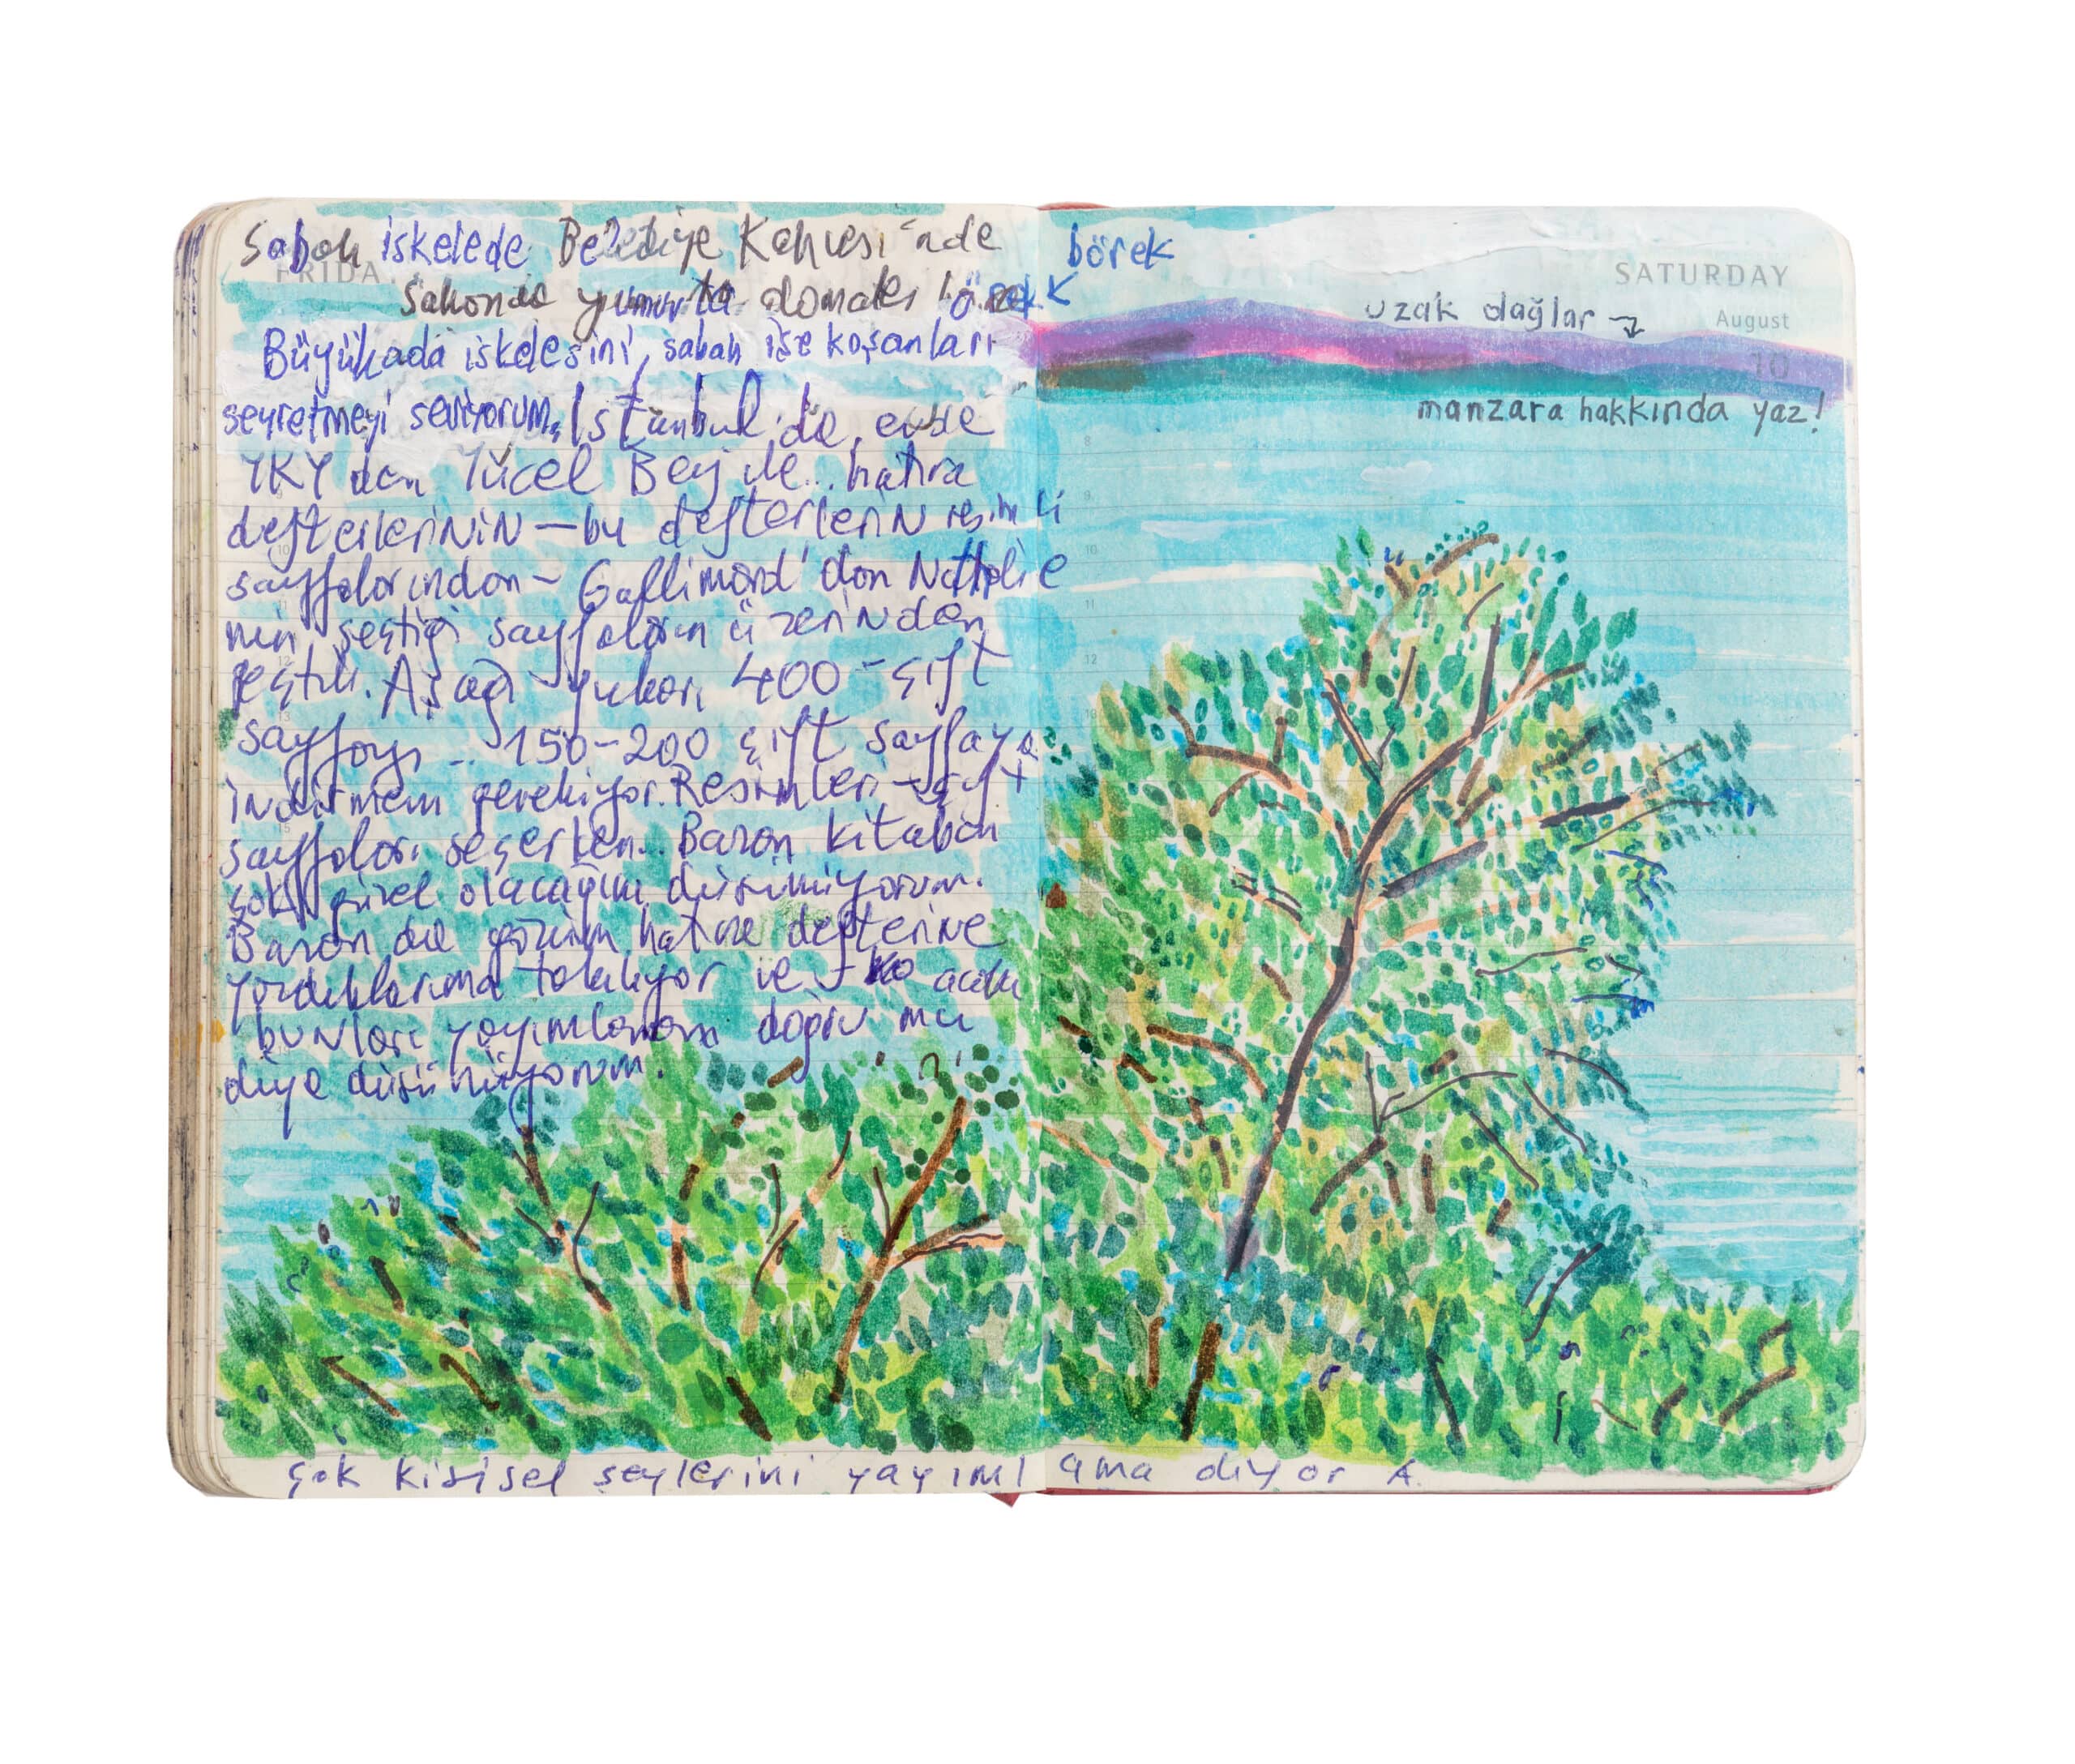 Sabah iskelede Belediye Kahvesi'nde
FRIDA
sahanda yumurta domates börek
Büyükada iskelesini, sabah işe koşanları
seyretmeyi seviyorum. İstanbul'da, evde
YKY den Yücel Bey ile.. hatıra
defterlerinin — bu defterlerin resimli
sayfalarından — Gallimard'dan Nathalie
nin seçtiği sayfaların üzerinden
geçtik. Aşağı yukarı 400 - çift
sayfayı... 150-200 çift sayfaya
indirmem gerekiyor. Resimleri - çift
sayfaları seçerken.. Bazan kitabın
çok güzel olacağını düşünüyorum.
Bazan da gözüm hatıra defterine
yazdıklarıma takılıyor ve acaba
bunları yayımlamam doğru mu
diye düşünüyorum.
börek
SATURDAY
uzak dağlar
August
10
manzara hakkında yaz!
8
9
10
11
12
çok kişisel şeylerini yayımlama diyor A.